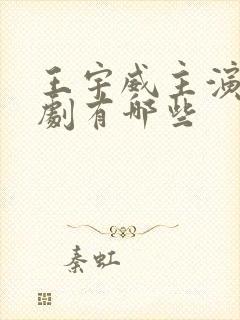 王宇威主演
劇有哪些
秦虹